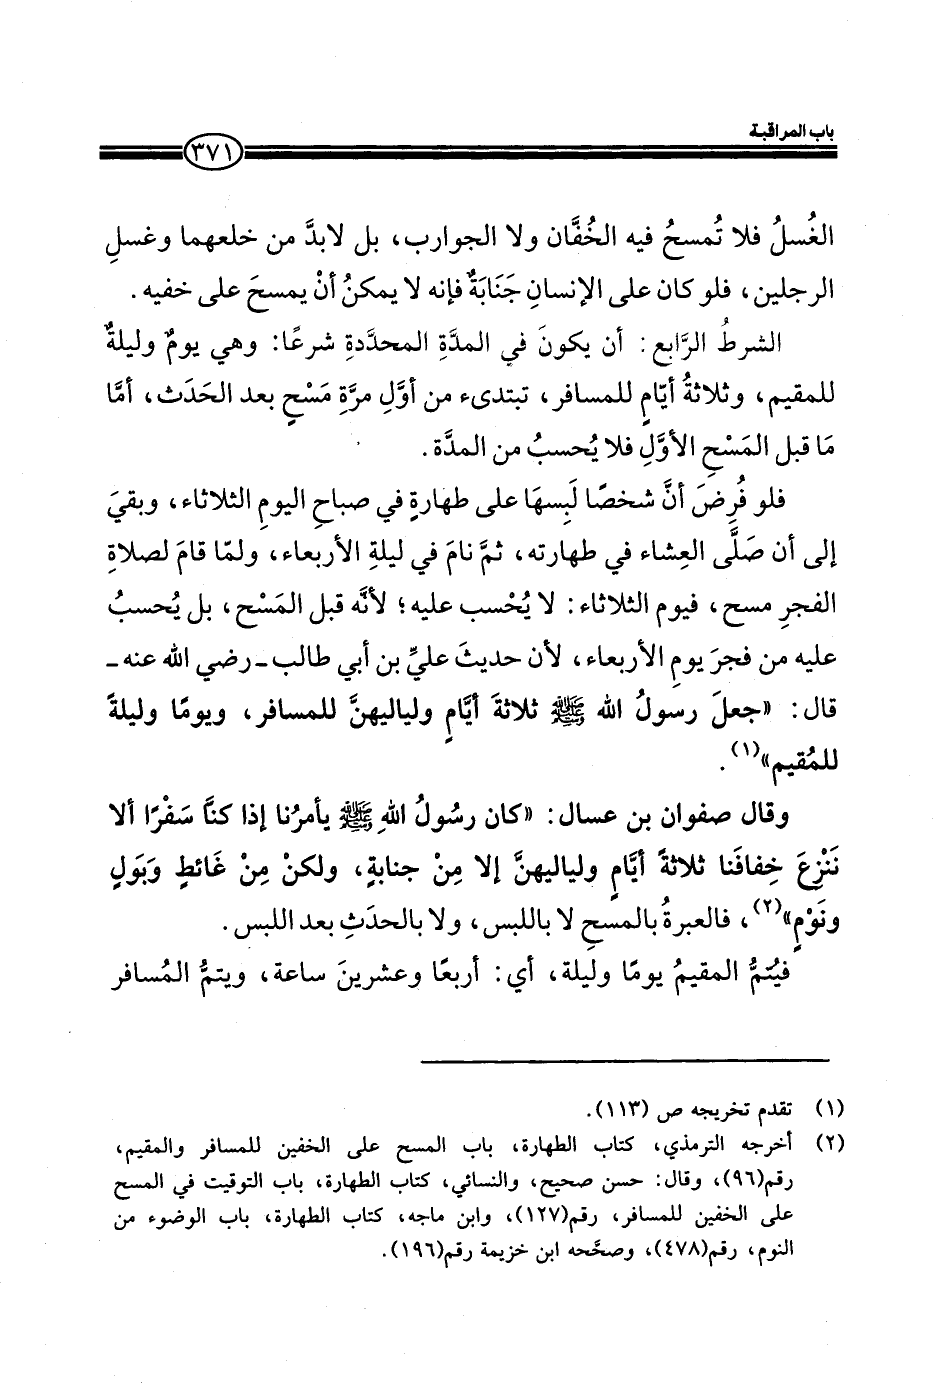 باب المراقبة
٣٧١
الغُسلُ فلا تُمسحُ فيه الخُفَّان ولا الجوارب، بل لابدَّ من خلعهما وغسلِ
الرجلين، فلو كان على الإنسانِ جَنَابَةٌ فإنه لا يمكنُ أنْ يمسحَ على خفيه.
الشرطُ الرَّابع: أن يكونَ في المدَّةِ المحدَّدةِ شرعًا: وهي يومٌ وليلةٌ
للمقيم، وثلاثةُ أيَّامٍ للمسافر، تبتدىء من أوَّلِ مرَّةِ مَسْحٍ بعد الحَدَث، أمَّا
مَا قبل المَسْحِ الأوَّلِ فلا يُحسبُ من المدَّة.
فلو فُرِضَ أنَّ شخصًا لَبِسهَا على طهارةٍ في صباحِ اليومِ الثلاثاء، وبقيَ
إلى أن صَلَّى العِشاء في طهارته، ثمَّ نامَ في ليلةِ الأربعاء، ولمّا قامَ لصلاةِ
الفجرِ مسح، فيوم الثلاثاء: لا يُحْسب عليه؛ لأنَّه قبل المَسْح، بل يُحسبُ
عليه من فجرَ يومِ الأربعاء، لأن حديثَ عليِّ بن أبي طالب ـ رضي الله عنه ـ
قال: «جعلَ رسولُ الله ﷺ ثلاثةَ أيَّامٍ ولياليهنَّ للمسافر، ويومًا وليلةً
للمُقيم»(١).
وقال صفوان بن عسال: «كان رسُولُ اللهِ ﷺ يأمرُنا إذا كنَّا سَفْرًا ألا
نَنْزِعَ خِفافَنا ثلاثةً أيَّامٍ ولياليهنَّ إلا مِنْ جنابةٍ، ولكنْ مِنْ غَائطٍ وَبَولٍ
ونَوْمٍ»(٢)، فالعبرةُ بالمسحِ لا باللبس، ولا بالحدَثِ بعد اللبس.
فيُتمُّ المقيمُ يومًا وليلة، أي: أربعًا وعشرينَ ساعة، ويتمُّ المُسافر
(١) تقدم تخريجه ص (١١٣).
(٢) أخرجه الترمذي، كتاب الطهارة، باب المسح على الخفين للمسافر والمقيم،
رقم(٩٦)، وقال: حسن صحيح، والنسائي، كتاب الطهارة، باب التوقيت في المسح
على الخفين للمسافر، رقم(١٢٧)، وابن ماجه، كتاب الطهارة، باب الوضوء من
النوم، رقم(٤٧٨)، وصحّحه ابن خزيمة رقم(١٩٦).